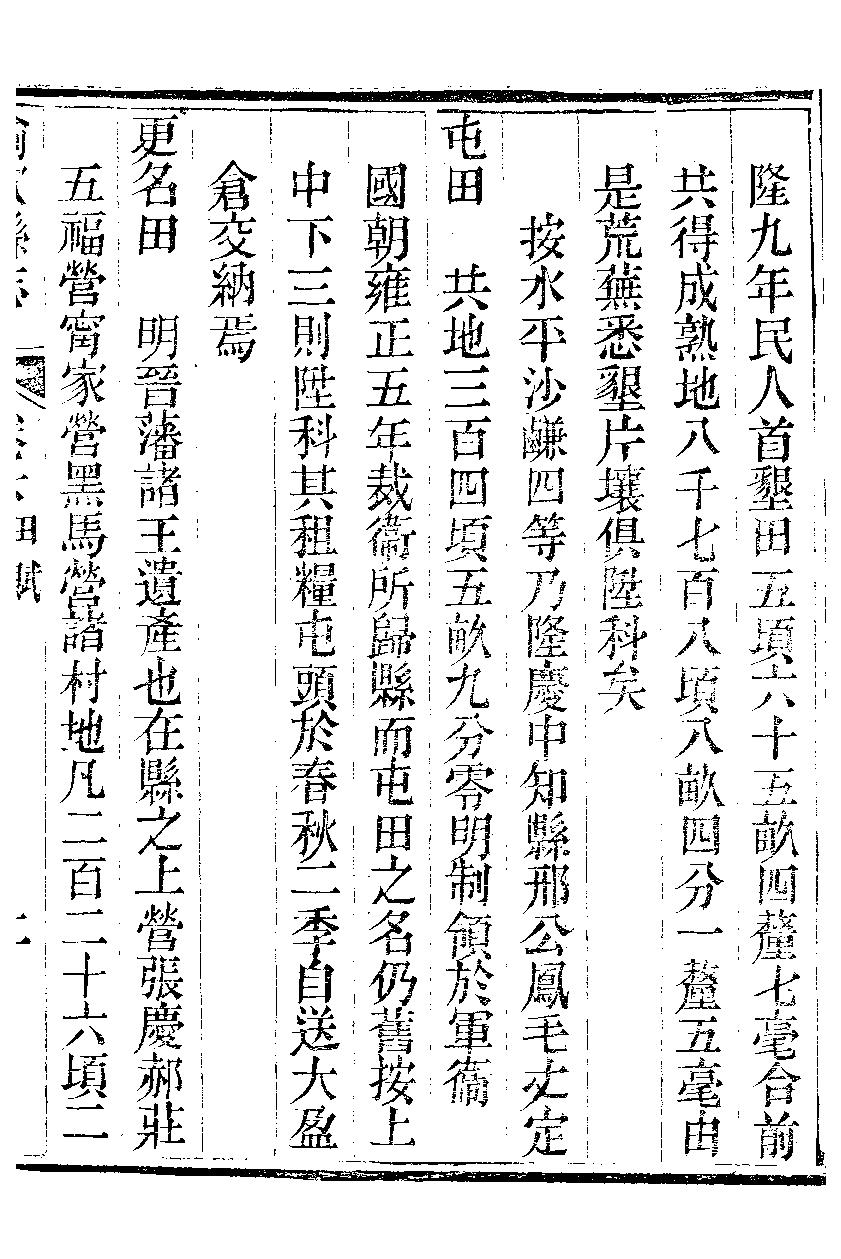 隆九年民人首墾田五頃六十五畝四釐七毫合前
共得成熟地八千七百八頃八畝四分一釐五毫由
是荒蕪悉墾片壤俱陞科矣
按水平沙鹻四等乃隆慶中知縣邢公鳳毛丈定
屯田 共地三百四頃五畝九分零明制領於軍衞
國朝雍正五年裁衞所歸縣而屯田之名仍舊按上
中下三則陞科其租糧屯頭於春秋二季自送大盈
倉交納焉
更名田 明晉藩諸王遺產也在縣之上營張慶郝莊
五福營甯家營黑馬營諸村地凡二百二十六頃二
田賦